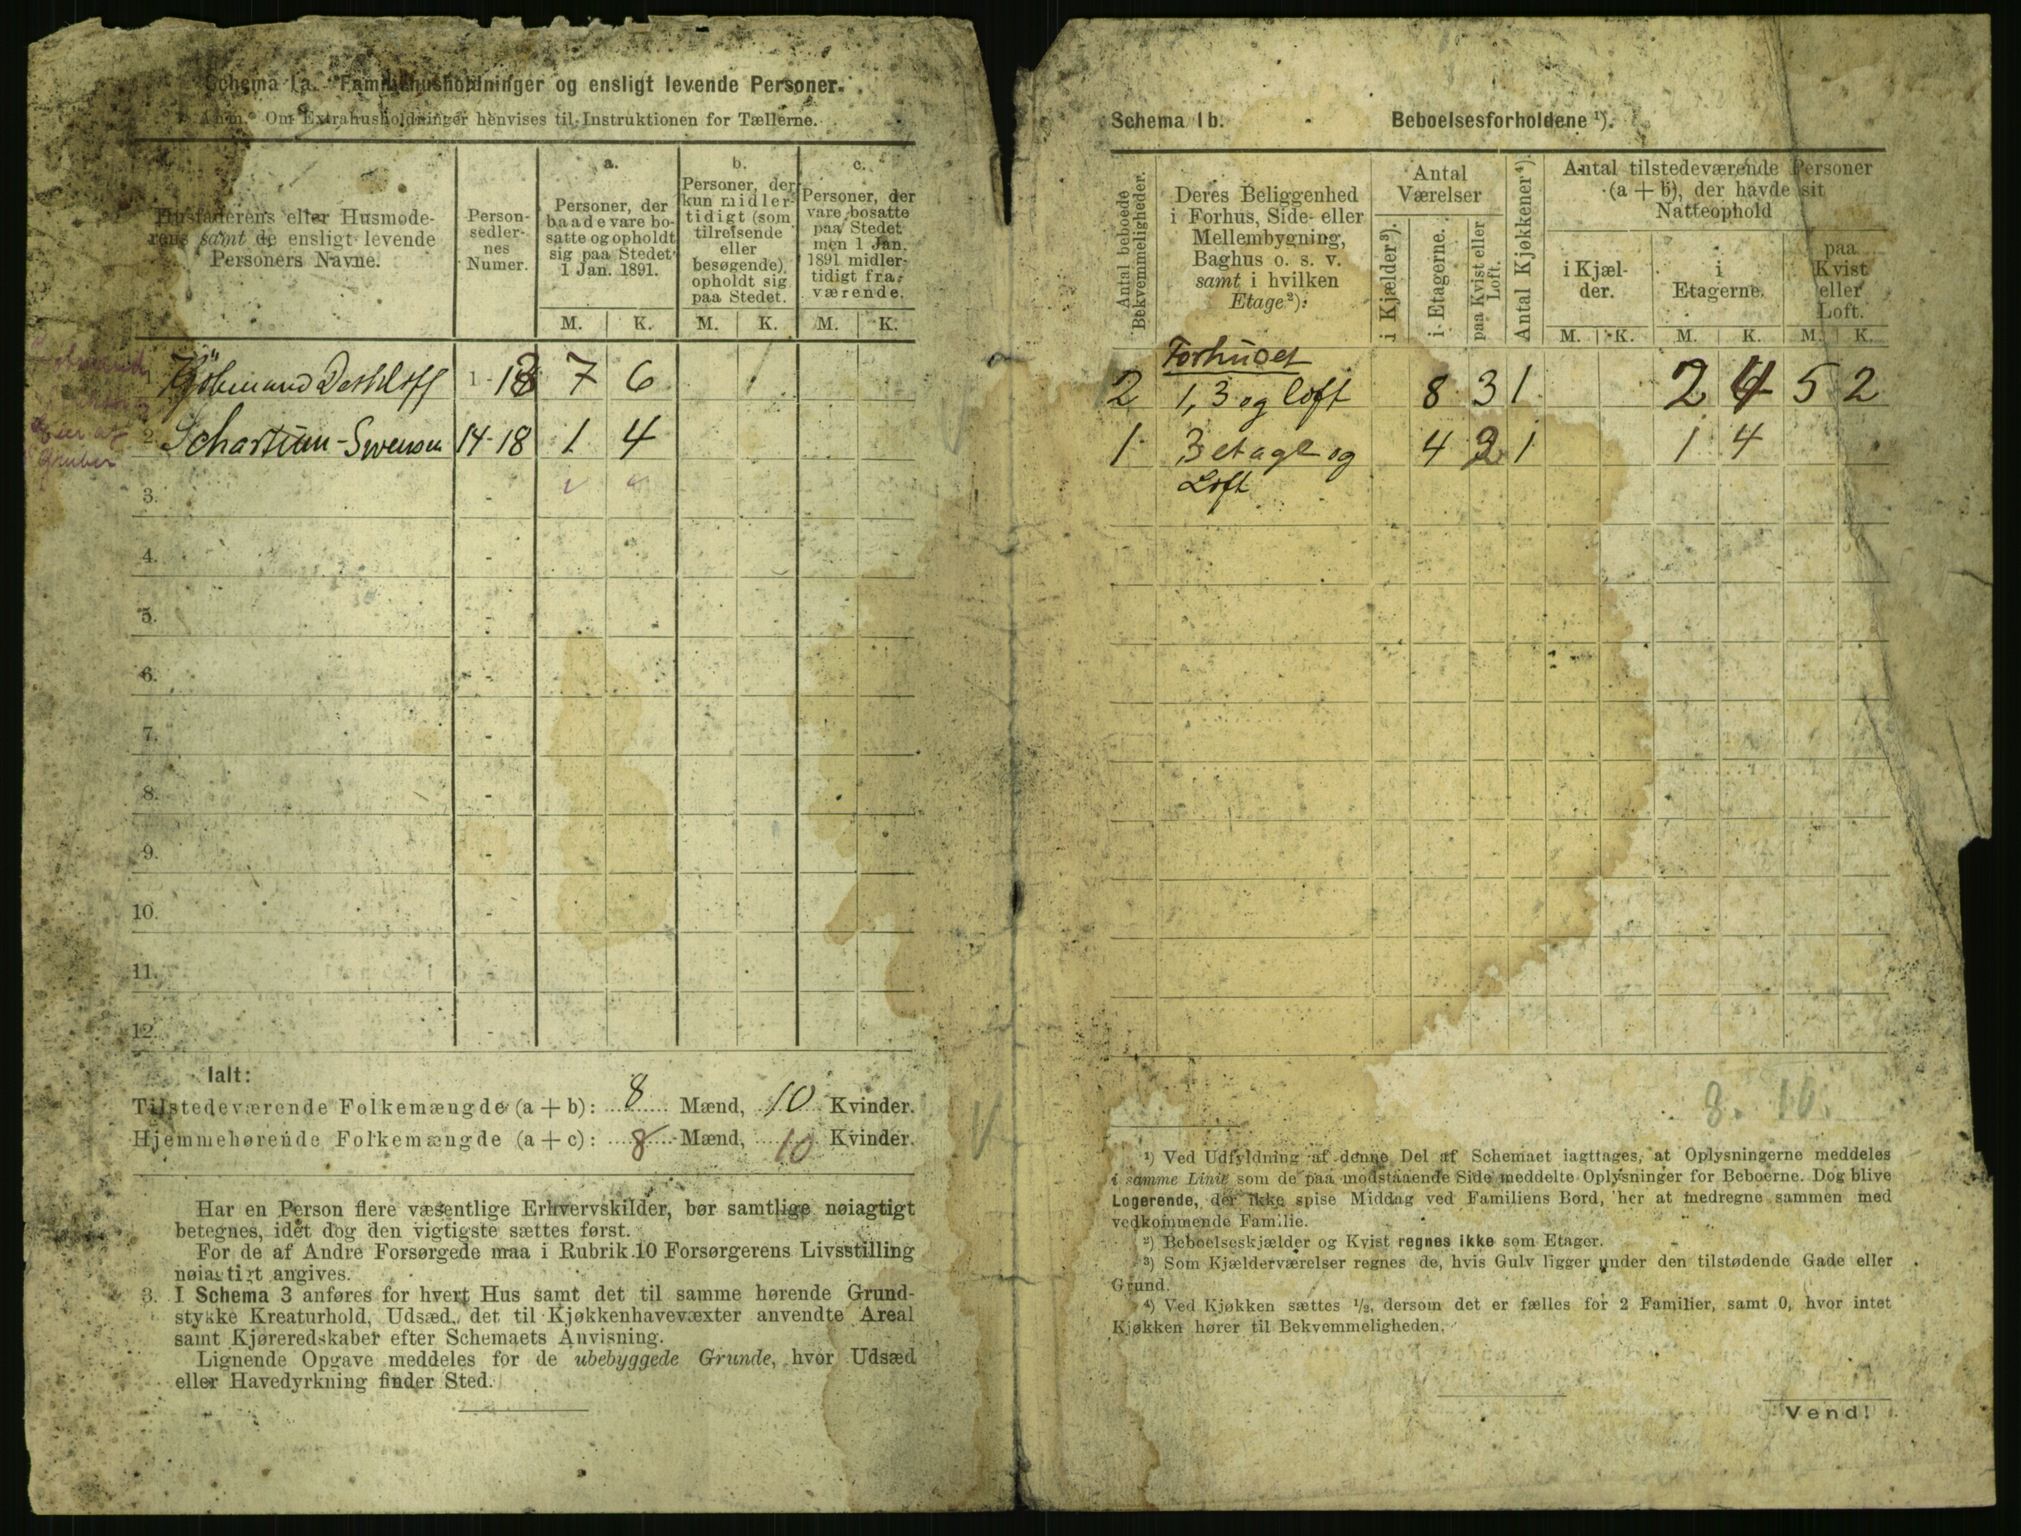 Schema 1a. Familiehusholdninger og ensligt levende Personer.
Anm. Om Extrahusholdninger henvises til Instruktionen for Tællerne.
Husfaderens eller Husmode-
rens samt de ensligt levende
Personers Navne.
Person-
sedler-
nes
Numer.
a.
Personer, der
baade vare bo-
satte og opholdt
sig paa Stedet
1 Jan. 1891.
b.
Personer, der
kun midler-
tidigt (som
tilreisende
eller
besøgende)
opholdt sig
paa Stedet.
c.
Personer, der
vare bosatte
paa Stedet
men 1 Jan.
1891 midler-
tidigt fra-
værende.
M. K. M. K. M. K.
1 Kjöbmand Dethloff 1-13 7 6
2. Schartum-Svensen 14-18 1 4
Eier af
Gruber
3. -
4. -
5. -
6. -
7. -
8. -
9. -
10. -
11. -
12. -
Ialt:
Tilstedeværende Folkemængde (a + b): 8 Mænd, 10 Kvinder.
Hjemmehørende Folkemængde (a + c): 8 Mænd, 10 Kvinder.
Har en Person flere væsentlige Erhvervskilder, bør samtlige nøiagtigt
betegnes, idet dog den vigtigste sættes først.
For de af Andre Forsørgede maa i Rubrik 10 Forsørgerens Livsstilling
nøiagtigt angives.
3. I Schema 3 anføres for hvert Hus samt det til samme hørende Grund-
stykke Kreaturhold, Udsæd, det til Kjøkkenhavevæxter anvendte Areal
samt Kjøreredskaber efter Schemaets Anvisning.
Lignende Opgave meddeles for de ubebyggede Grunde, hvor Udsæd
eller Havedyrkning finder Sted.
Schema 1b. Beboelsesforholdene ¹).
Antal beboede
Bekvemmeligheder.
Deres Beliggenhed
i Forhus, Side- eller
Mellembygning,
Baghus o. s. v.
samt i hvilken
Etage ²).
Antal
Værelser
i Kjælder ³).
i Etagerne.
paa Kvist eller
Loft.
Antal Kjøkkener ⁴).
Antal tilstedeværende Personer
(a + b), der havde sit
Natteophold
i Kjæl-
der.
i
Etagerne.
paa
Kvist
eller
Loft.
M. K. M. K. M. K.
Forhuset
2 1, 3 og loft 8 3 1 2 4 5 2
1 3 etage og 4 2 1 1 4
Loft
8. 10.
¹) Ved Udfyldning af denne Del af Schemaet iagttages, at Oplysningerne meddeles
i samme Linie som de paa modstaaende Side meddelte Oplysninger for Beboerne. Dog blive
Logerende, der ikke spise Middag ved Familiens Bord, her at medregne sammen med
vedkommende Familie.
²) Beboelseskjælder og Kvist regnes ikke som Etager.
³) Som Kjælderværelser regnes de, hvis Gulv ligger under den tilstødende Gade eller
Grund.
⁴) Ved Kjøkken sættes ½, dersom det er fælles for 2 Familier, samt 0, hvor intet
Kjøkken hører til Bekvemmeligheden.
Vend!